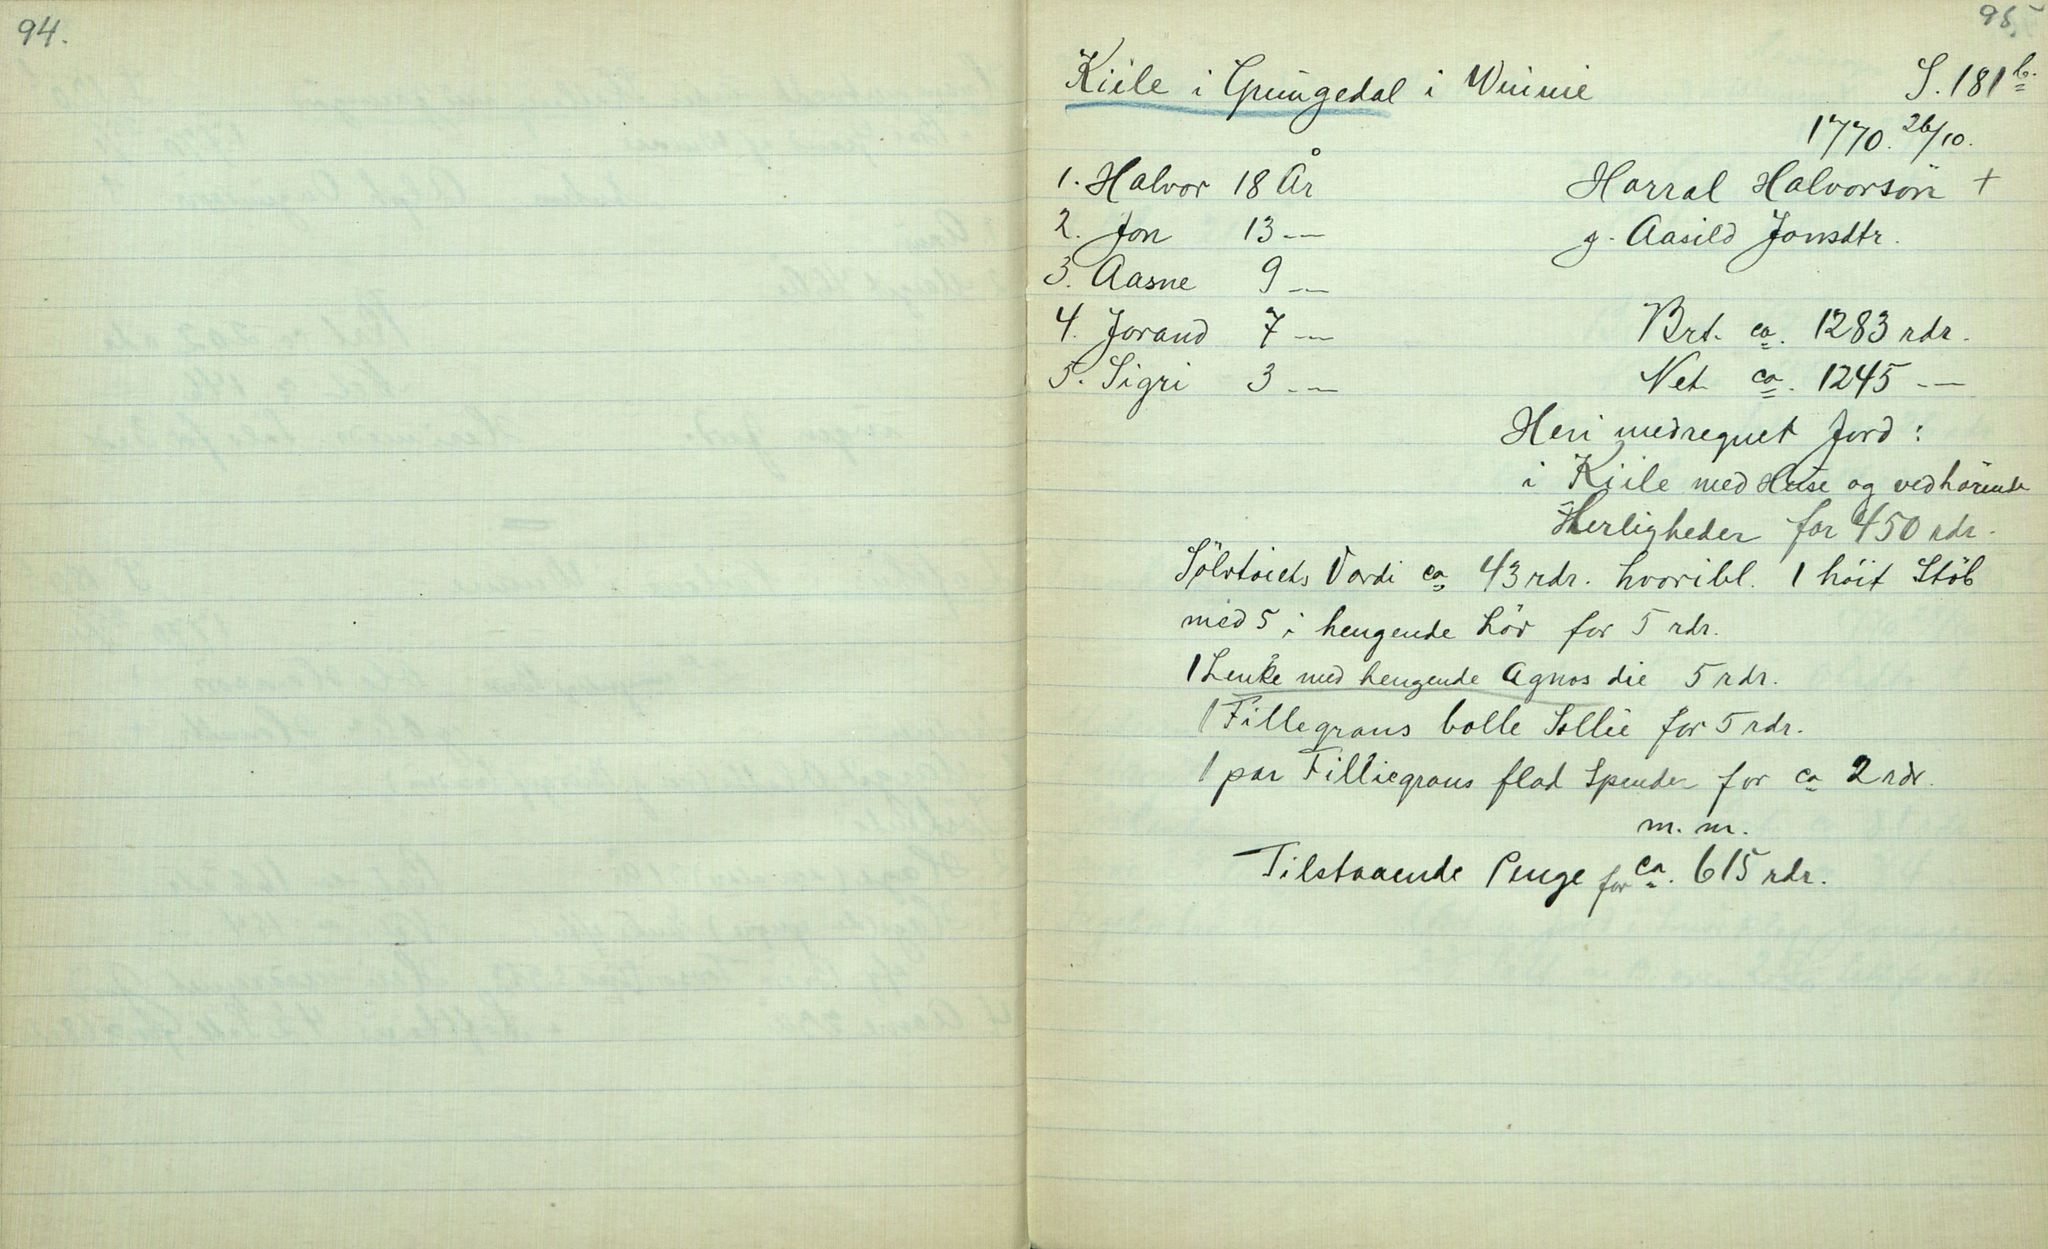 94.
95.
Kiile i Grungedal i Winnie S. 181 b.
1770. 26/10.
1. Halvor 18 År Harral Halvorsön +
2. Jon 13 -- g. Aasild Jonsdtr.
3. Aasne 9 --
4. Jorand 7 -- Brt. ca. 1283 rdr.
5. Sigri 3 -- Net. ca. 1245 --
Heri medregnet Jord:
i Kiile med Huse og vedhörende
Herligheder for 450 rdr.
Sölvtöiets Værdi ca 43 rdr. hvoribl. 1 höit Stöb
med 5 i hengende Löv for 5 rdr.
1 Lenke med hengende Agnos die 5 rdr.
1 Fillegrans bolle Sollie for 5 rdr.
1 par Filliegrans flad Spender for ca 2 rdr.
m. m.
Tilstaaende Penge for ca. 615 rdr.